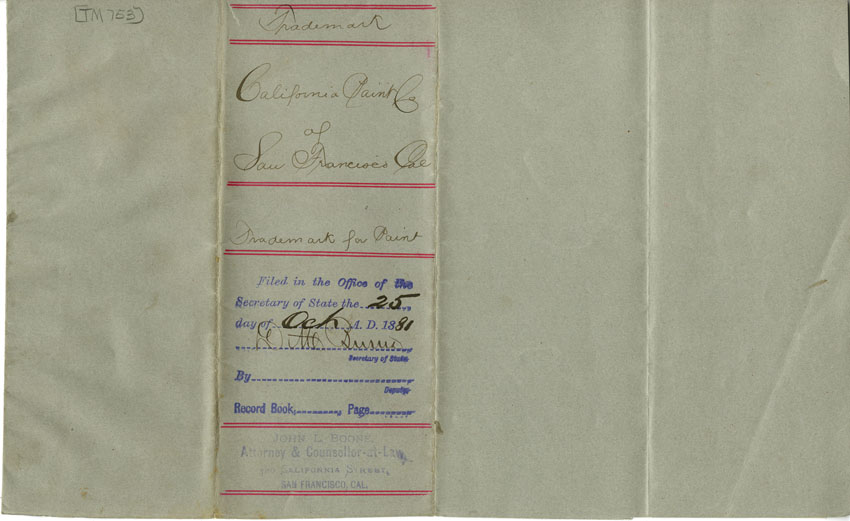 [TM 753]
Trademark
California Paint Co
of
San Francisco Cal
Trademark for Paint
Filed in the Office of the
Secretary of State the 25
day of Oct A. D. 1881
Secretary of State
By
Deputy
Record Book, Page
JOHN L. BOONE,
Attorney & Counsellor-at-Law,
CALIFORNIA STREET,
SAN FRANCISCO, CAL.